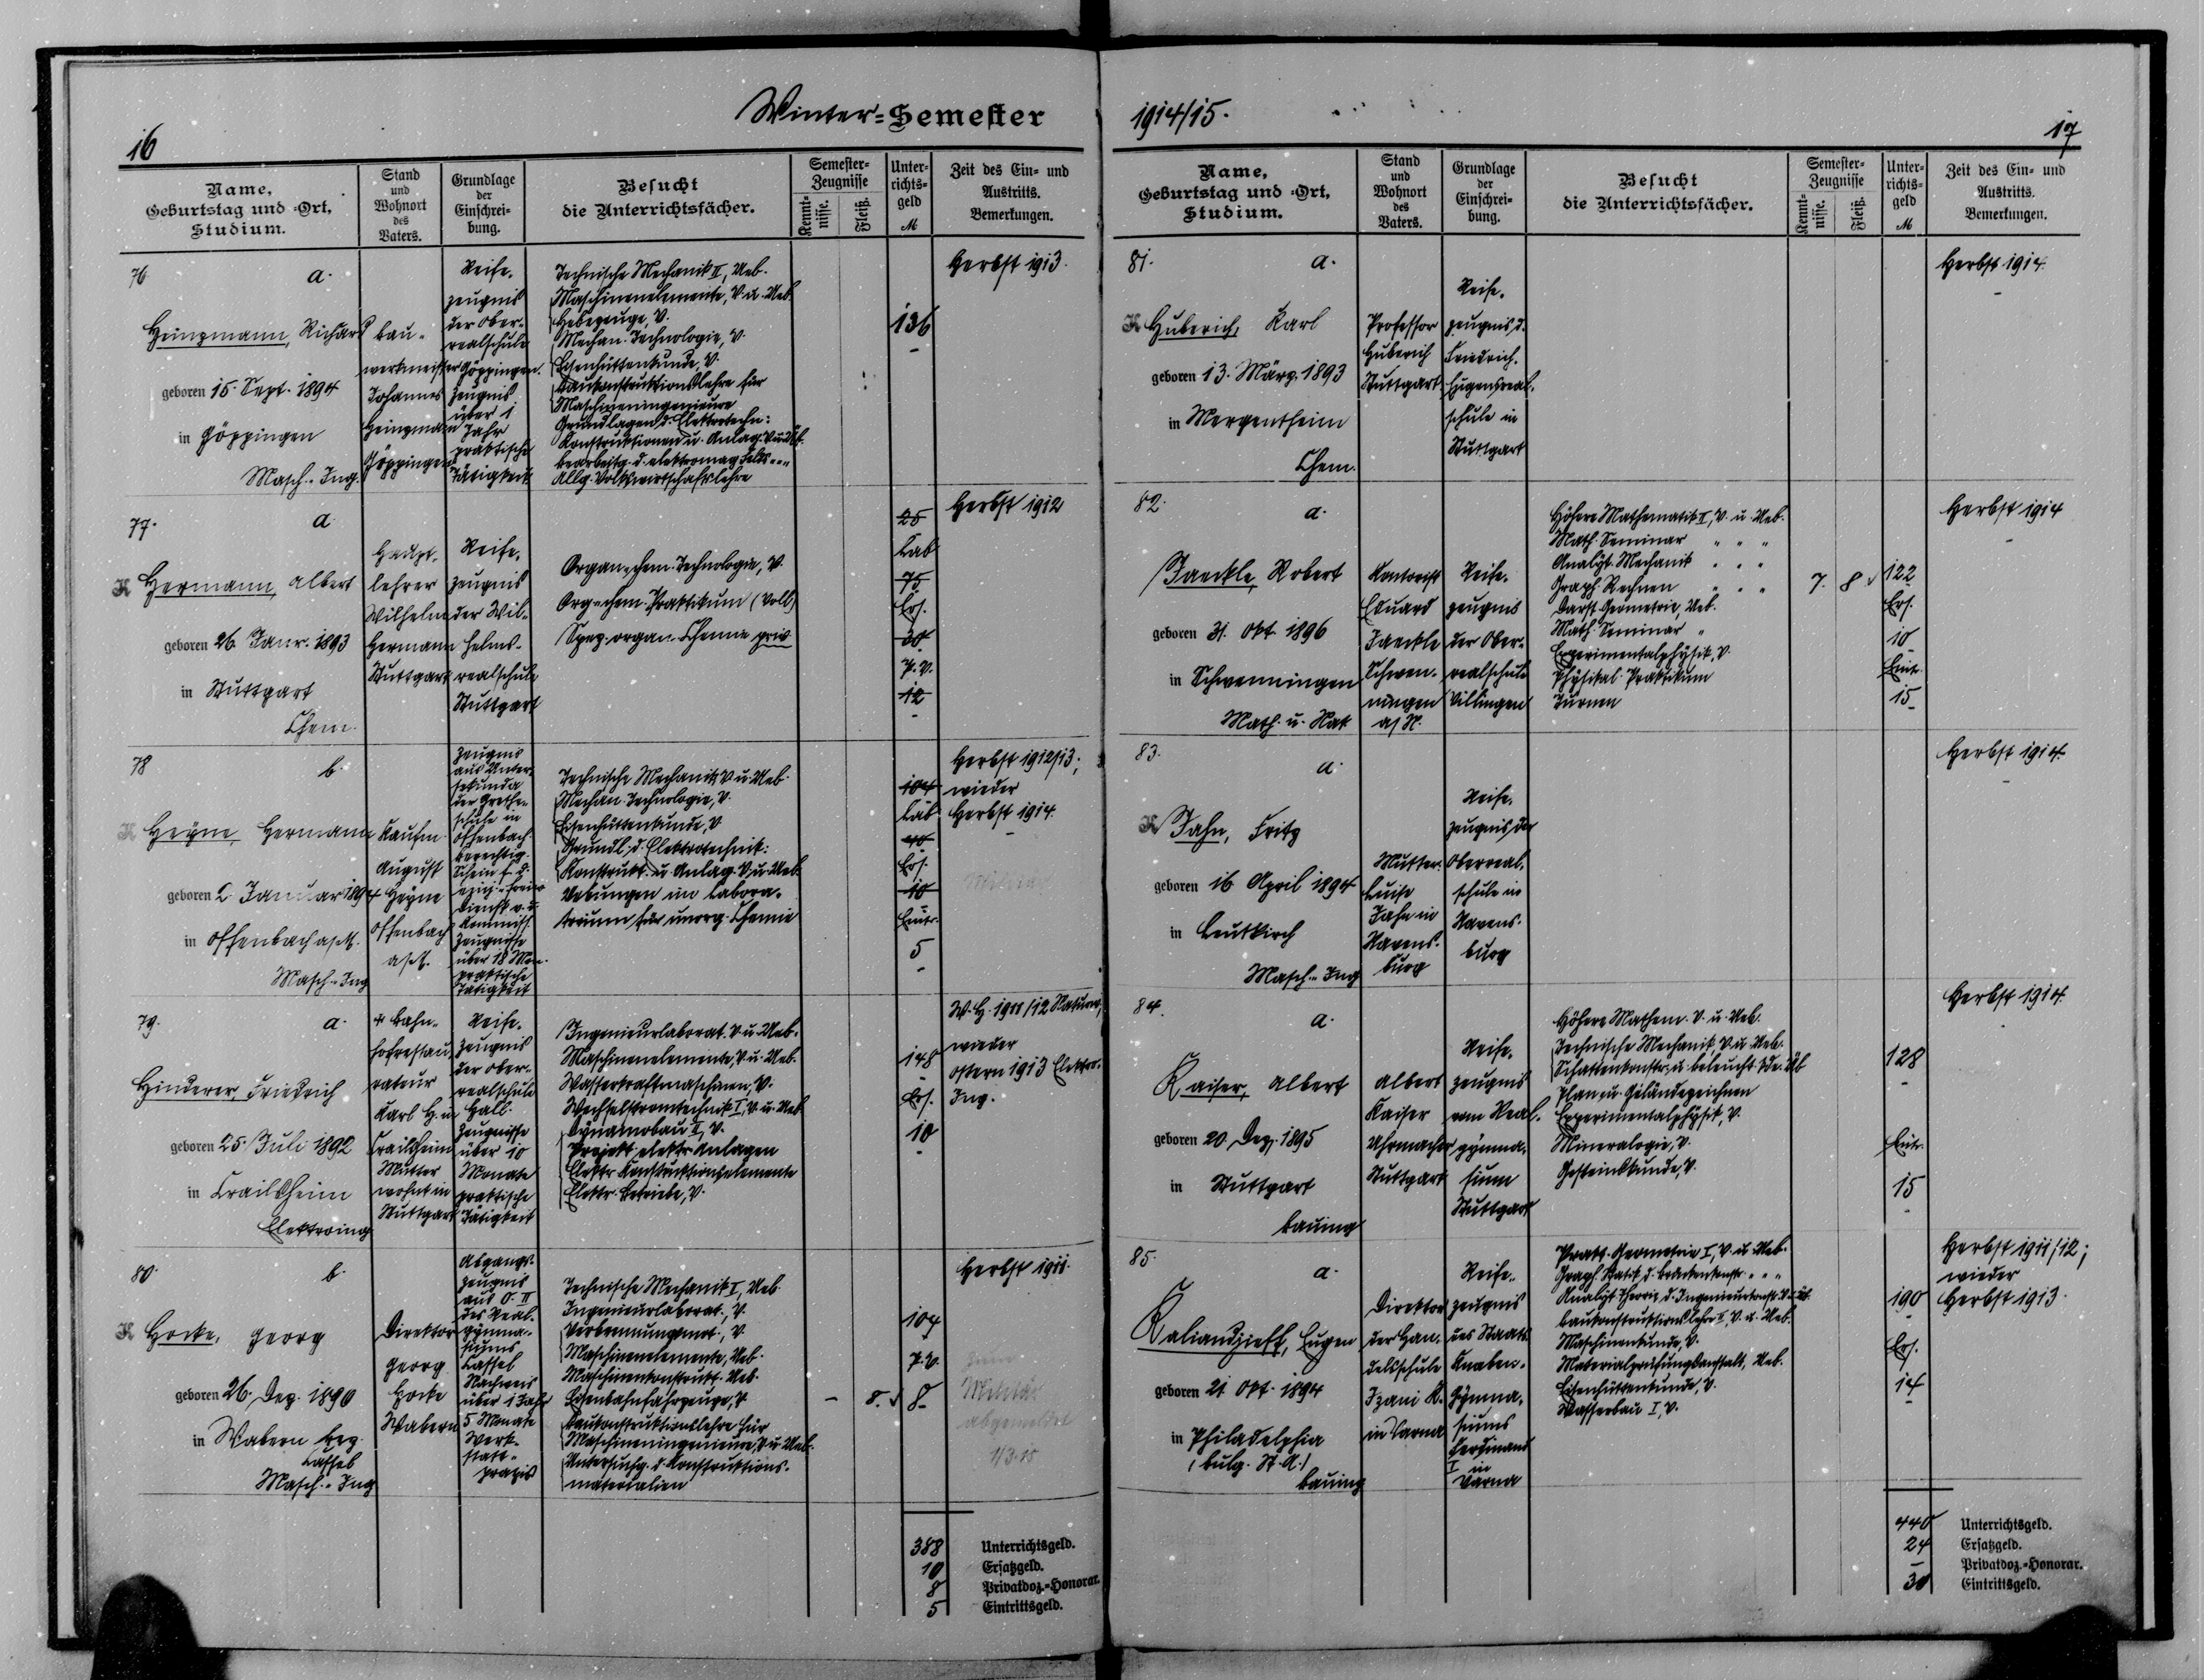 Winter-Semester
16
Name,
Geburtstag und -Ort,
Studium.
Stand
und
Wohnort
des
Vaters.
Grundlage
der
Einschrei-
bung.
Besucht
die Unterrichtsfächer.
Semester-
Zeugnisse
Kennt-
nisse.
Fleiß.
Unter-
richts-
geld
M
Zeit des Ein- und
Austritts.
Bemerkungen.
76
a.
Heinzmann, Richard
geboren 15. Sept. 1894
in Göppingen
Masch.-Ing.
Bau-
werkmeister
Johannes
Heinzmann
Göppingen
Reife-
zeugnis
der Ober-
realschule
Göppingen.
Zeugnis
über 1
Jahr
praktische
Tätigkeit
Technische Mechanik II, Ueb.
Maschinenelemente, V. u. Ueb.
Hebezeuge, V.
Mechan. Technologie, V.
Eisenhüttenkunde, V.
Baukonstruktionslehre für
Maschineningenieure
Grundlagen d. Elektrotechn:
Konstruktionen u. Anlag. V. u. Üb.
Bearbeitg. d. elektromag. Felds
Allg. Volkswirtschaftslehre
136
-
Herbst 1913.
77.
a
K Hermann, Albert
geboren 26. Janr. 1893
in Stuttgart
Chem.
Haupt-
lehrer
Wilhelm
Hermann
Stuttgart
Reife-
zeugnis
der Wil-
helms-
realschule
Stuttgart
Organ.-chem. Technologie, V.
Org.-chem. Praktikum (voll)
Spez. organ. Chemie priv
25
Lab
75
Ers.
30
P. V.
12
-
Herbst 1912
78
b.
K Heyne, Hermann
geboren 2. Januar 1894
in Offenbach a/M.
Masch.-Ing
Kaufm.
August
Heyne
Offenbach
a/M.
Zeugnis
aus Unter-
sekunda
der Goethe-
schule in
Offenbach
Berechtig.
schein f. d.
einj.-freiw
Dienst v. d.
Kommiss.
Zeugnisse
über 18 Mon.
praktische
Tätigkeit
Technische Mechanik V. u. Ueb.
Mechan. Technologie, V.
Eisenhüttenkunde, V
Grundl. d. Elektrotechnik:
Konstrukt. u. Anlag. V. u. Ueb.
Uebungen im Labora-
torium für unorg. Chemie
104
Lab
40
Ers.
10
Eintr.
5
-
Herbst 1912/13;
wieder
Herbst 1914.
Militär
79.
a.
Hinderer, Friedrich
geboren 25. Juli 1892
in Crailsheim
Elektroing
† Bahn-
hofrestau-
rateur
Karl H. in
Crailsheim
Mutter
wohnt in
Stuttgart
Reife-
zeugnis
der Ober-
realschule
Hall.
Zeugnisse
über 10
Monate
praktische
Tätigkeit
Ingenieurlaborat. V. u. Ueb.
Maschinenelemente, V. u. Ueb.
Wasserkraftmaschinen, V.
Wechselstromtechnik I, V. u. Ueb
Dynamobau II, V.
Projekt. elektr. Anlagen
Elektr. Konstruktionselemente
Elektr. Betriebe, V.
148
-
Ers.
10
-
W. H. 1911/12 Naturw.;
wieder
Ostern 1913 Elektro-
Ing.
80.
b.
K Hocke, Georg
geboren 26. Dez. 1890
in Wabern Bez.
Cassel
Masch.-Ing
Direktor
Georg
Hocke
Wabern
Abgangs-
zeugnis
aus O. II
des Real-
gymna-
siums
Cassel
Nachweis
über 1 Jahr
5 Monate
Werk-
statt-
praxis
Technische Mechanik I, Ueb.
Ingenieurlaborat., V.
Verbrennungsmot., V.
Maschinenelemente, Ueb.
Maschinenkonstrukt. Ueb.
Eisenbahnfahrzeuge, V
Baukonstruktionslehre für
Maschineningenieure, V. u. Ueb.
Untersuchg. d. Konstruktions-
materialien
- 8.
104
P. V.
8-
Herbst 1911.
zum
Militär
abgemeldet
1/3.15
388 Unterrichtsgeld.
10 Ersatzgeld.
8 Privatdoz.-Honorar.
5 Eintrittsgeld.
1914/15.
17
Name,
Geburtstag und -Ort,
Studium.
Stand
und
Wohnort
des
Vaters.
Grundlage
der
Einschrei-
bung.
Besucht
die Unterrichtsfächer.
Semester-
Zeugnisse
Kennt-
nisse.
Fleiß.
Unter-
richts-
geld
M
Zeit des Ein- und
Austritts.
Bemerkungen.
81.
a.
K Huberich, Karl
geboren 13. März. 1893
in Mergentheim
Chem.
Professor
Huberich
Stuttgart
Reife-
zeugnis d.
Friedrich-
Eugensreal-
schule in
Stuttgart
Herbst 1914.
-
82.
a.
Jaeckle, Robert
geboren 31. Okt. 1896
in Schwenningen
Math. u. Nat.
Kontorist
Eduard
Jaeckle
Schwen-
ningen
a/N.
Reife-
zeugnis
der Ober-
realschule
Villingen
Höhere Mathematik I, V. u. Ueb.
Math. Seminar " " "
Analyt. Mechanik " " "
Graph. Rechnen " " "
Darst. Geometrie, Ueb.
Math. Seminar "
Experimentalphysik, V.
Physikal. Praktikum
Turnen
7. 8
122
Ers.
10
Eintr.
15
Herbst 1914
-
83.
a.
K Jahn, Fritz
geboren 16 April 1894
in Leutkirch
Masch.-Ing
Mutter:
Luise
Jahn in
Ravens-
burg
Reife-
zeugnis der
Oberreal-
schule in
Ravens-
burg
Herbst 1914.
-
84.
a.
Kaiser, Albert
geboren 20. Dez. 1895
in Stuttgart
Bauing
Albert
Kaiser
Uhrmacher
Stuttgart
Reife-
zeugnis
vom Real-
gymna-
sium
Stuttgart
Höhere Mathem. V. u. Ueb.
Technische Mechanik V. u. Ueb.
Schattenkonstr. u. Beleucht.
Plan- u. Geländezeichnen
Experimentalphysik, V.
Mineralogie, V.
Gesteinskunde, V.
128
-
Eintr.
15
-
Herbst 1914.
-
85.
a.
Kaliandjieff, Eugen
geboren 21 Okt. 1894
in Philadelphia
(bulg. St. A.)
Bauing
Direktor
der Han-
delsschule
Izani K.
in Varna
Reife-
zeugnis
des Staats
Knaben-
Gymna-
siums
Ferdinand
I in
Varna
Prakt. Geometrie I, V. u. Ueb.
Graph. Statik d. Brückenkonstr. " " "
Analyt. Theorie d. Ingenieurkonstr. V. u. Üb.
Baukonstruktionslehre I, V. u. Ueb.
Maschinenkunde, V.
Materialprüfungsanstalt, Ueb.
Eisenhüttenkunde, V.
Wasserbau I, V.
190
-
Ers.
14
-
Herbst 1911/12;
wieder
Herbst 1913.
440 Unterrichtsgeld.
24 Ersatzgeld.
- Privatdoz.-Honorar.
30 Eintrittsgeld.